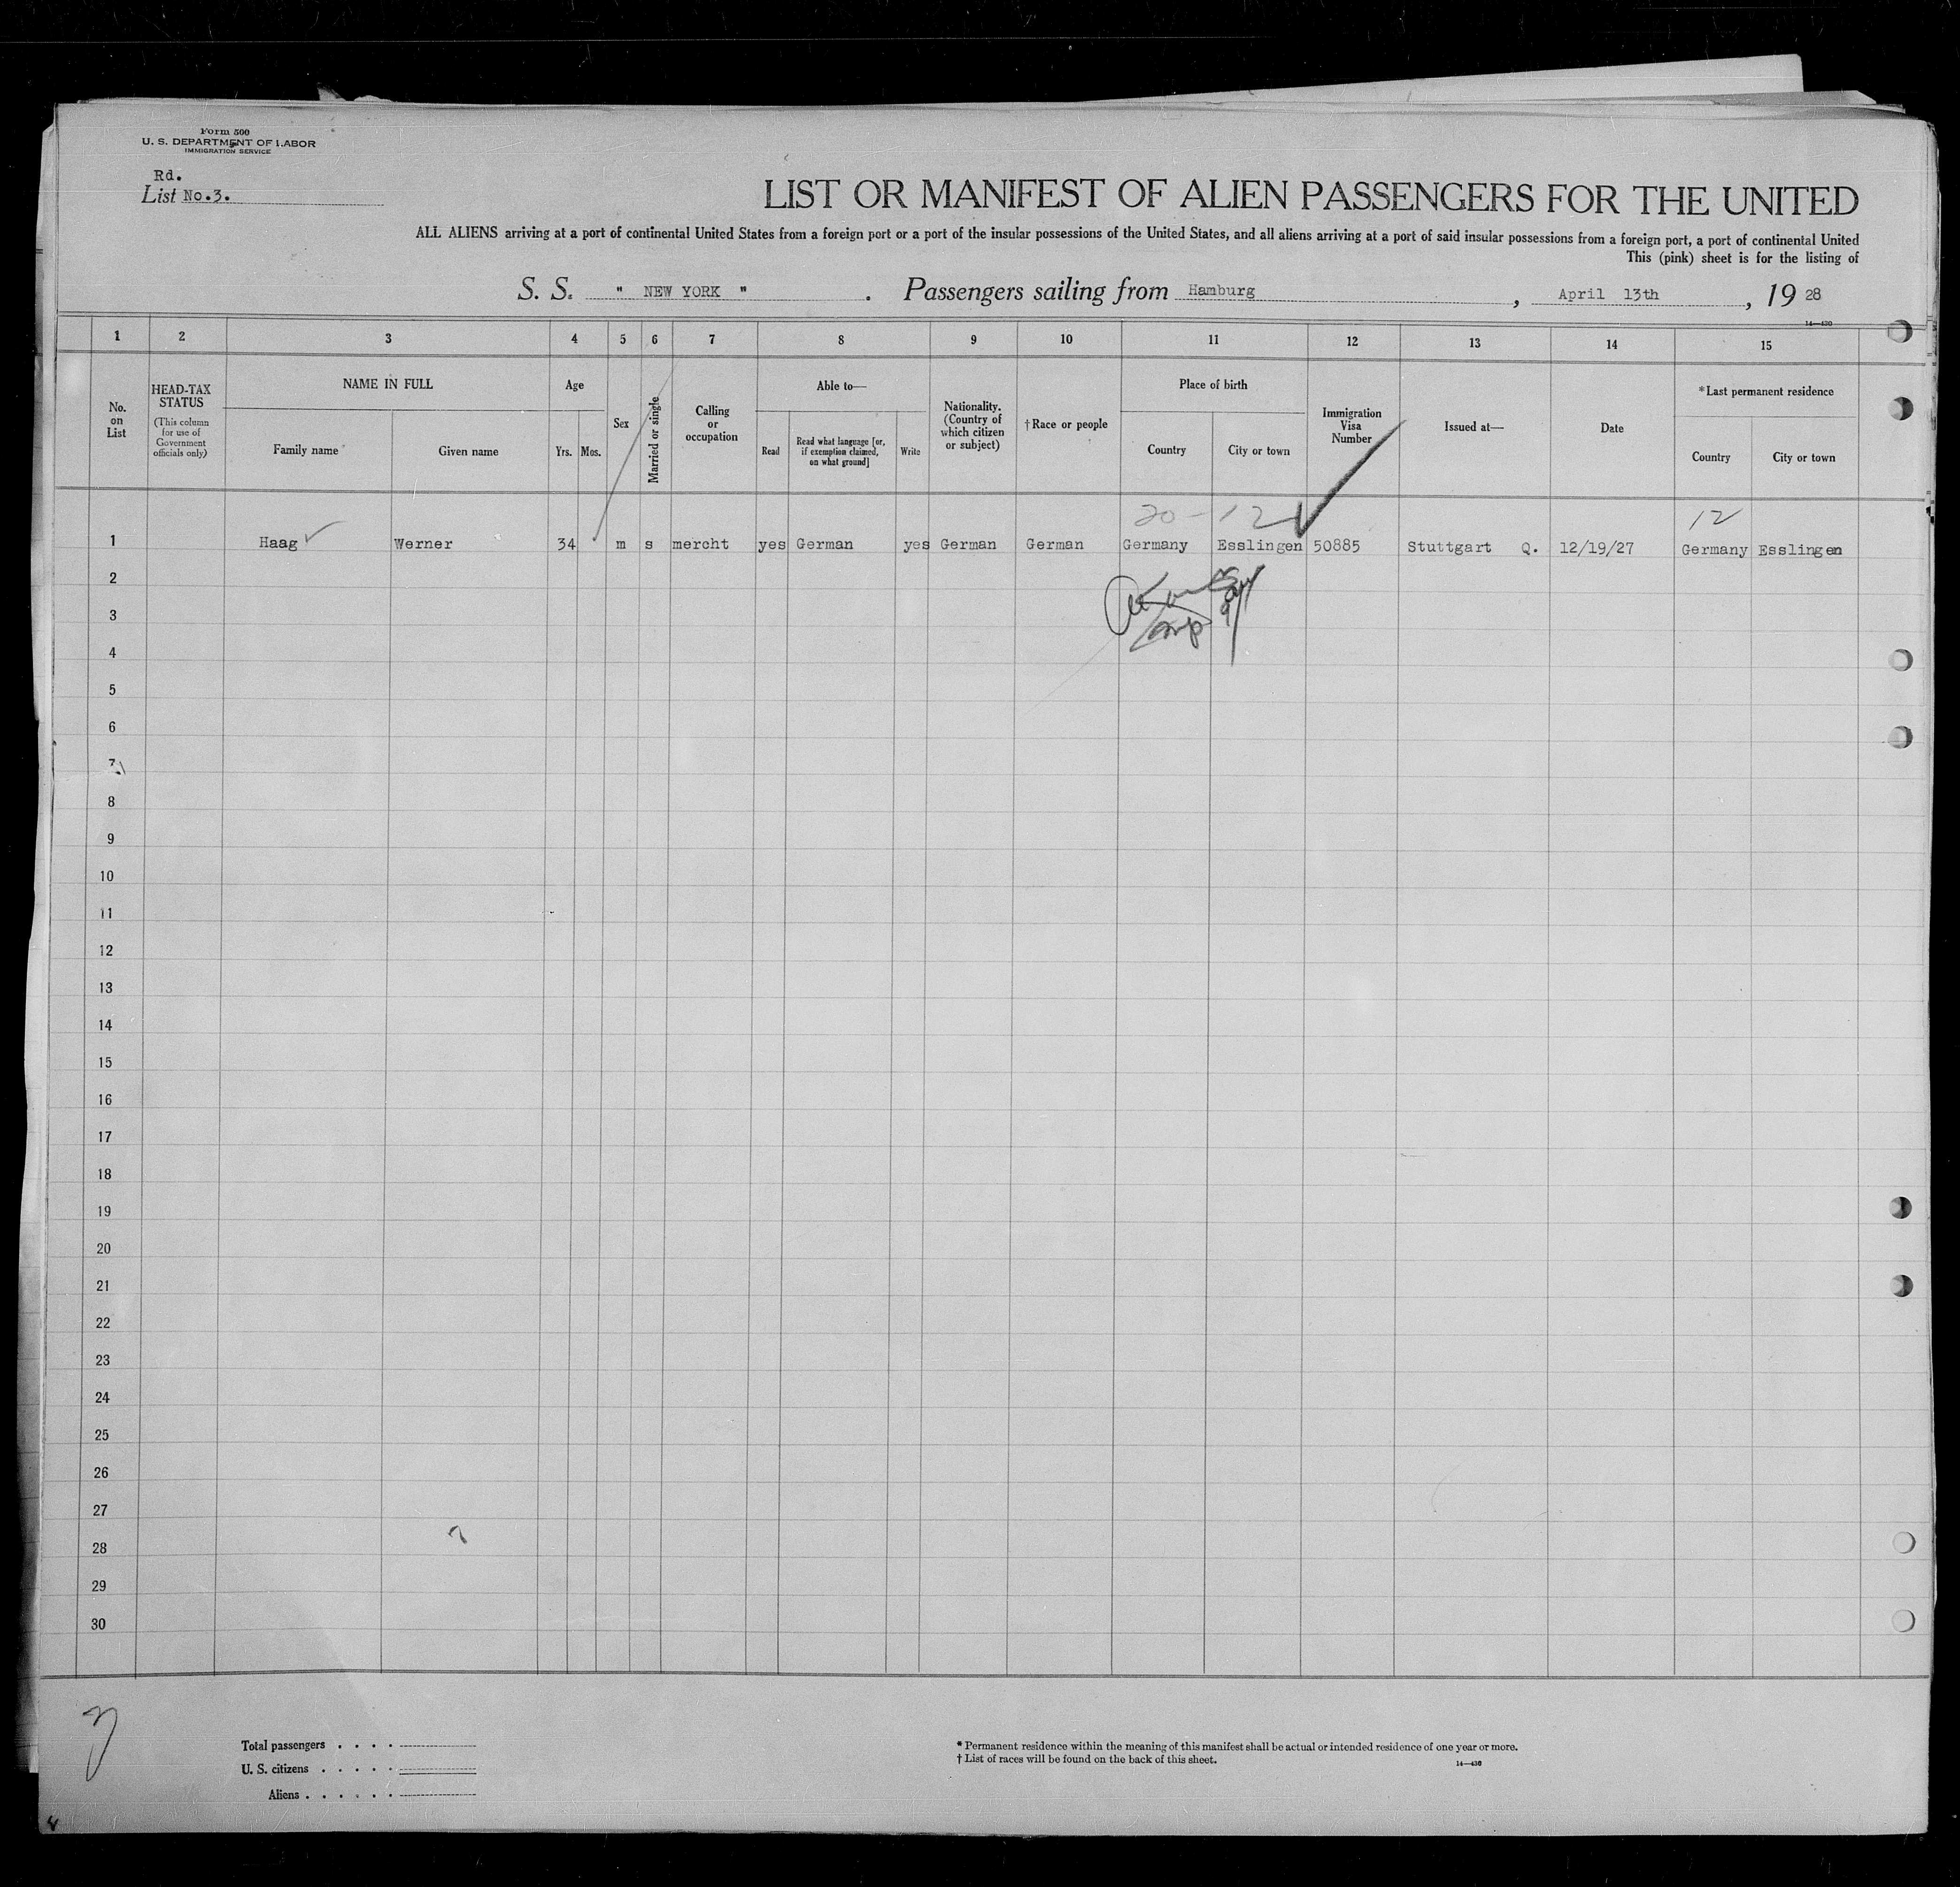 Form 500
U. S. DEPARTMENT OF LABOR
IMMIGRATION SERVICE
Rd.
List No.3.
LIST OR MANIFEST OF ALIEN PASSENGERS FOR THE UNITED
ALL ALIENS arriving at a port of continental United States from a foreign port or a port of the insular possessions of the United States, and all aliens arriving at a port of said insular possessions from a foreign port, a port of continental United
This (pink) sheet is for the listing of
S. S. " NEW YORK " . Passengers sailing from Hamburg , April 13th , 19 28
14—430
1 2 3 4 5 6 7 8 9 10 11 12 13 14 15
No. on List
HEAD-TAX STATUS
(This column for use of Government officials only)
NAME IN FULL
Family name Given name
Age
Yrs. Mos.
Sex
Married or single
Calling or occupation
Able to—
Read
Read what language [or, if exemption claimed, on what ground]
Write
Nationality. (Country of which citizen or subject)
†Race or people
Place of birth
Country City or town
Immigration Visa Number
Issued at—
Date
*Last permanent residence
Country City or town
20 - 12 12
1 Haag Werner 34 m s mercht yes German yes German German Germany Esslingen 50885 Stuttgart Q. 12/19/27 Germany Esslingen
2
3
4
5
6
7
8
9
10
11
12
13
14
15
16
17
18
19
20
21
22
23
24
25
26
27
28
29
30
Total passengers . . . .
U. S. citizens . . . . .
Aliens . . . . . .
* Permanent residence within the meaning of this manifest shall be actual or intended residence of one year or more.
† List of races will be found on the back of this sheet.
14—430